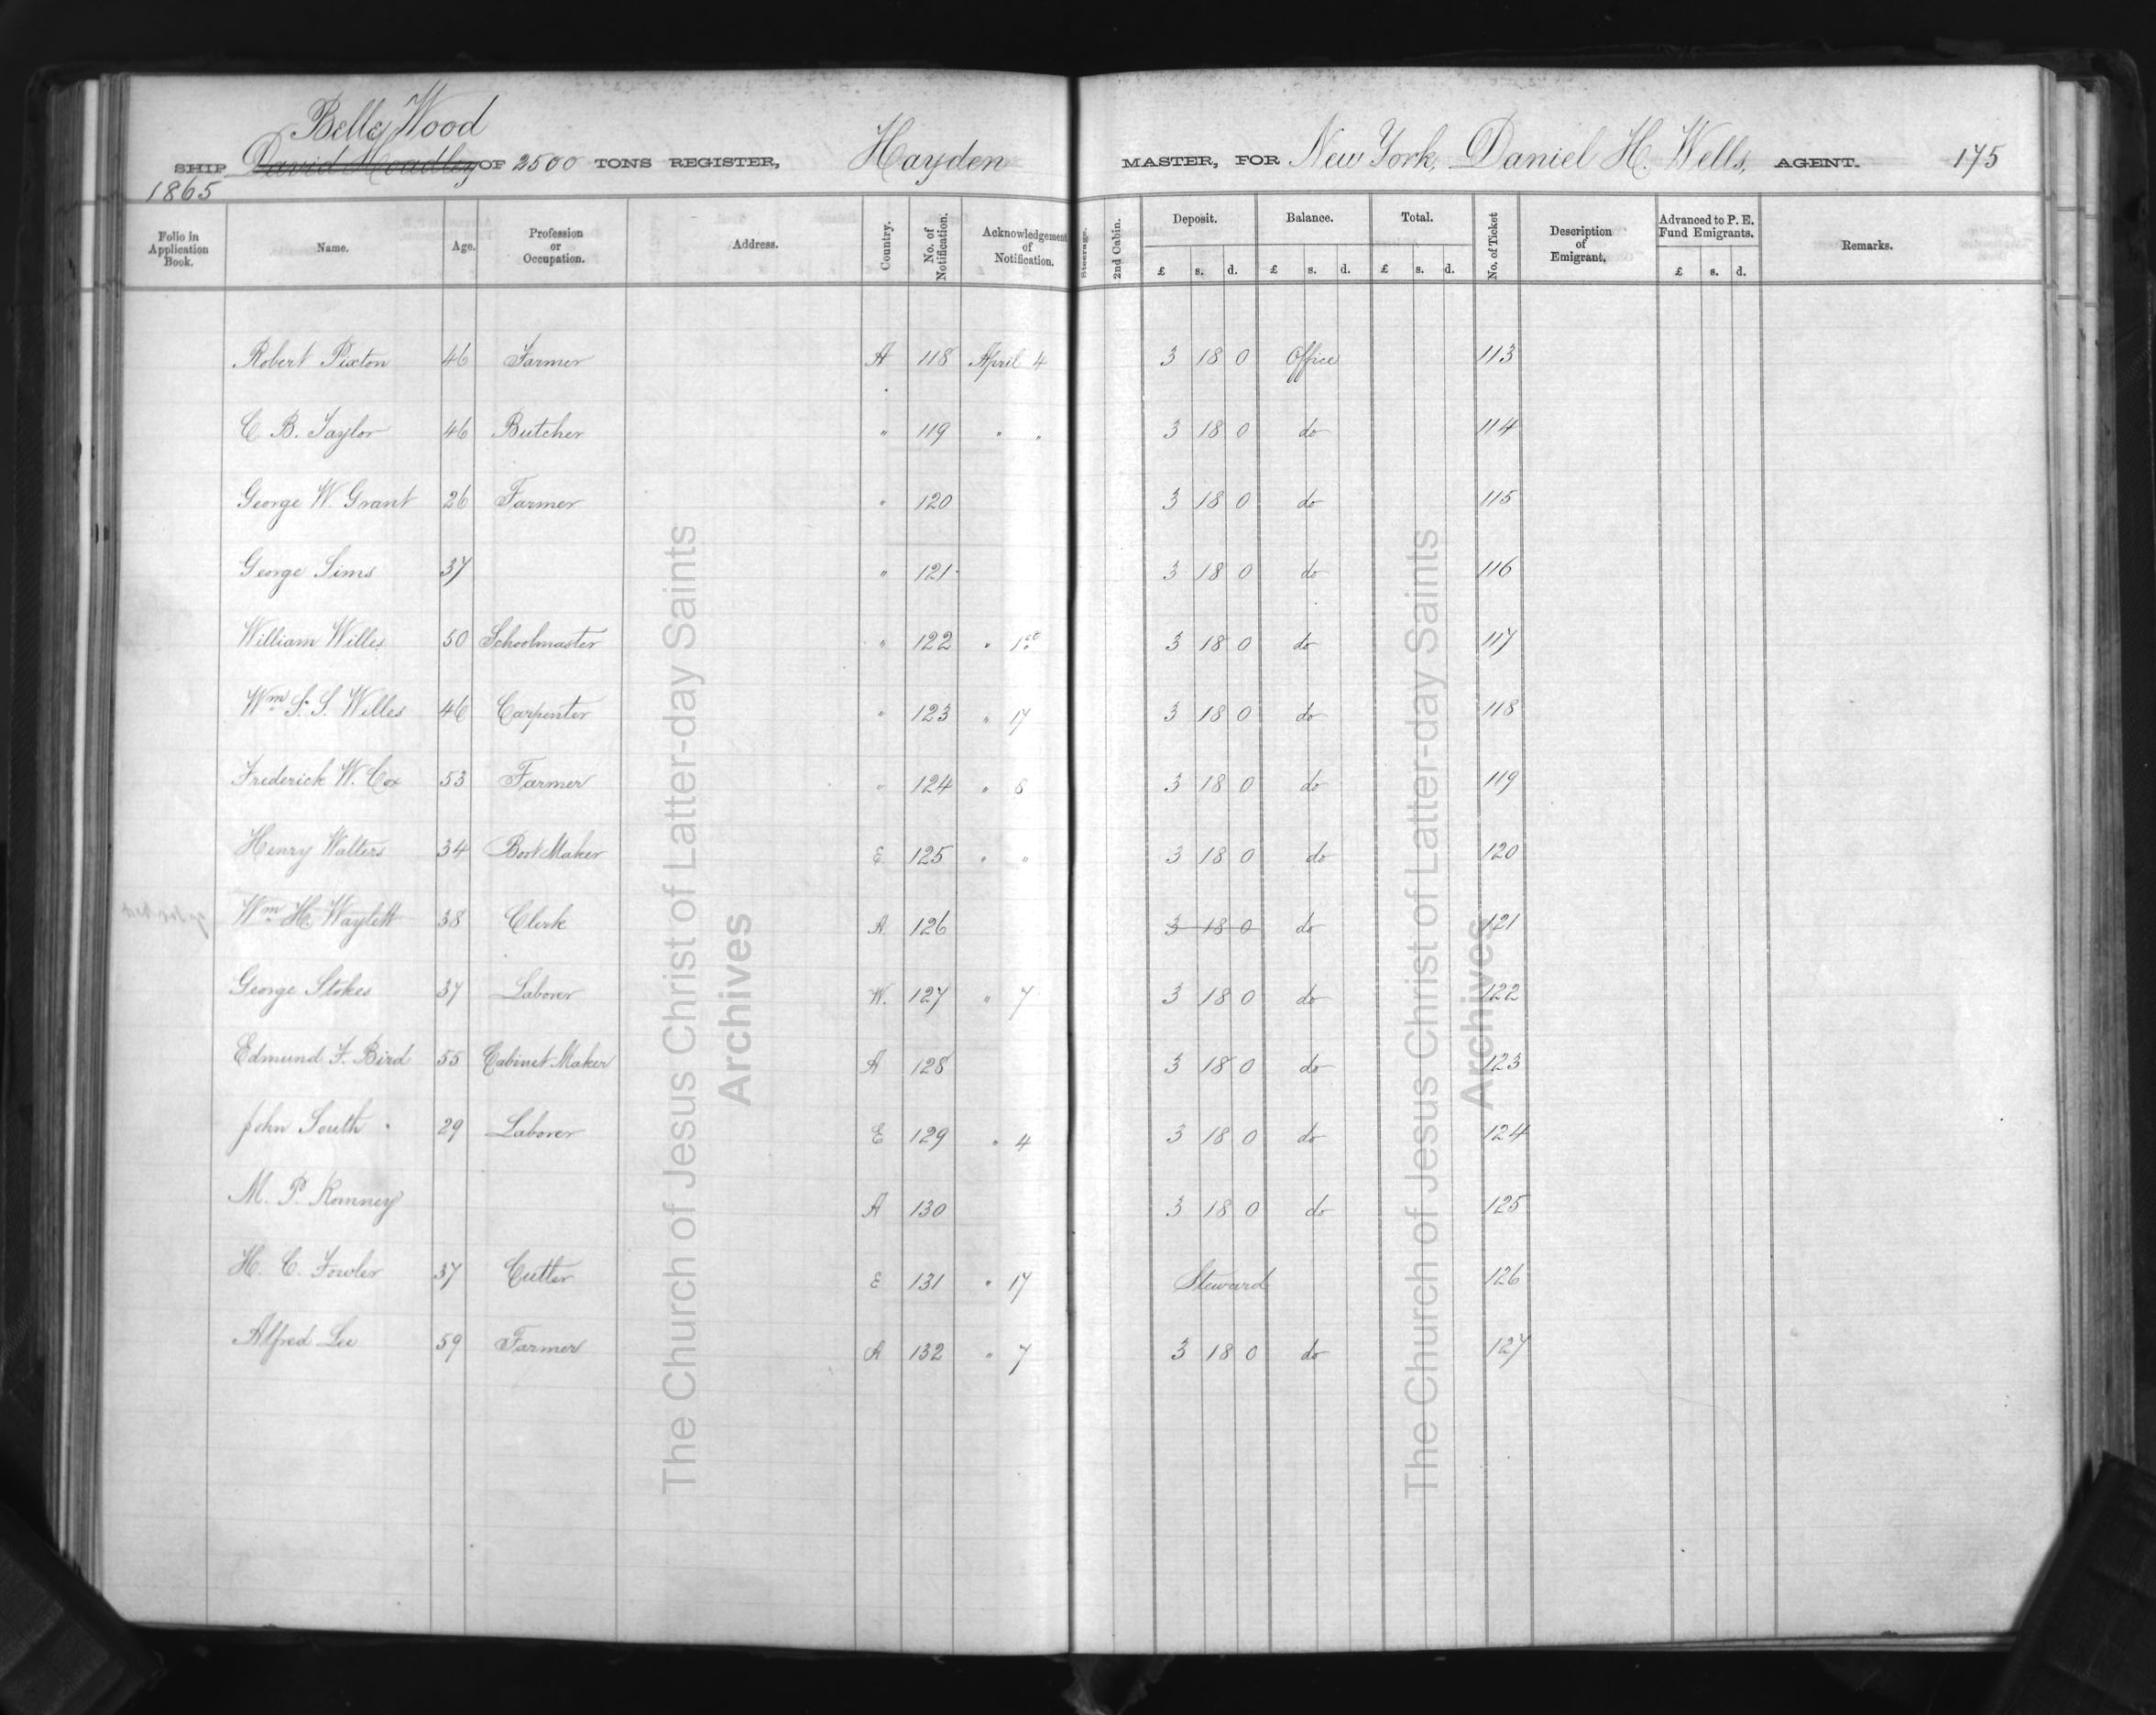 Belle Wood
SHIP David Hoadley OF 2500 TONS REGISTER, Hayden MASTER, FOR New York, Daniel H. Wells, AGENT. 175
1865
Folio in Application Book. Name. Age. Profession or Occupation. Address. Country. No. of Notification. Acknowledgement of Notification. Steerage. 2nd Cabin. Deposit. £ s. d. Balance. £ s. d. Total. £ s. d. No. of Ticket Description of Emigrant. Advanced to P. E. Fund Emigrants. £ s. d. Remarks.
Robert Pixton 46 Farmer A 118 April 4 3 18 0 Office 113
C. B. Taylor 46 Butcher " 119 " " 3 18 0 do 114
George W. Grant 26 Farmer " 120 3 18 0 do 115
George Sims 37 " 121 3 18 0 do 116
William Willes 50 Schoolmaster " 122 " 1st 3 18 0 do 117
Wm S. S. Willes 46 Carpenter " 123 " 17 3 18 0 do 118
Frederick W. Cox 53 Farmer " 124 " 8 3 18 0 do 119
Henry Walters 34 Boot Maker E 125 " " 3 18 0 do 120
Wm H. Waylett 38 Clerk A 126 3 18 0 do 121
George Stokes 37 Laborer W. 127 " 7 3 18 0 do 122
Edmund F. Bird 55 Cabinet Maker A 128 3 18 0 do 123
John South 29 Laborer E 129 " 4 3 18 0 do 124
M. P. Romney A 130 3 18 0 do 125
H. C. Fowler 37 Cutler E 131 " 17 Steward 126
Alfred Lee 59 Farmer A 132 " 7 3 18 0 do 127
The Church of Jesus Christ of Latter-day Saints
Archives
The Church of Jesus Christ of Latter-day Saints
Archives